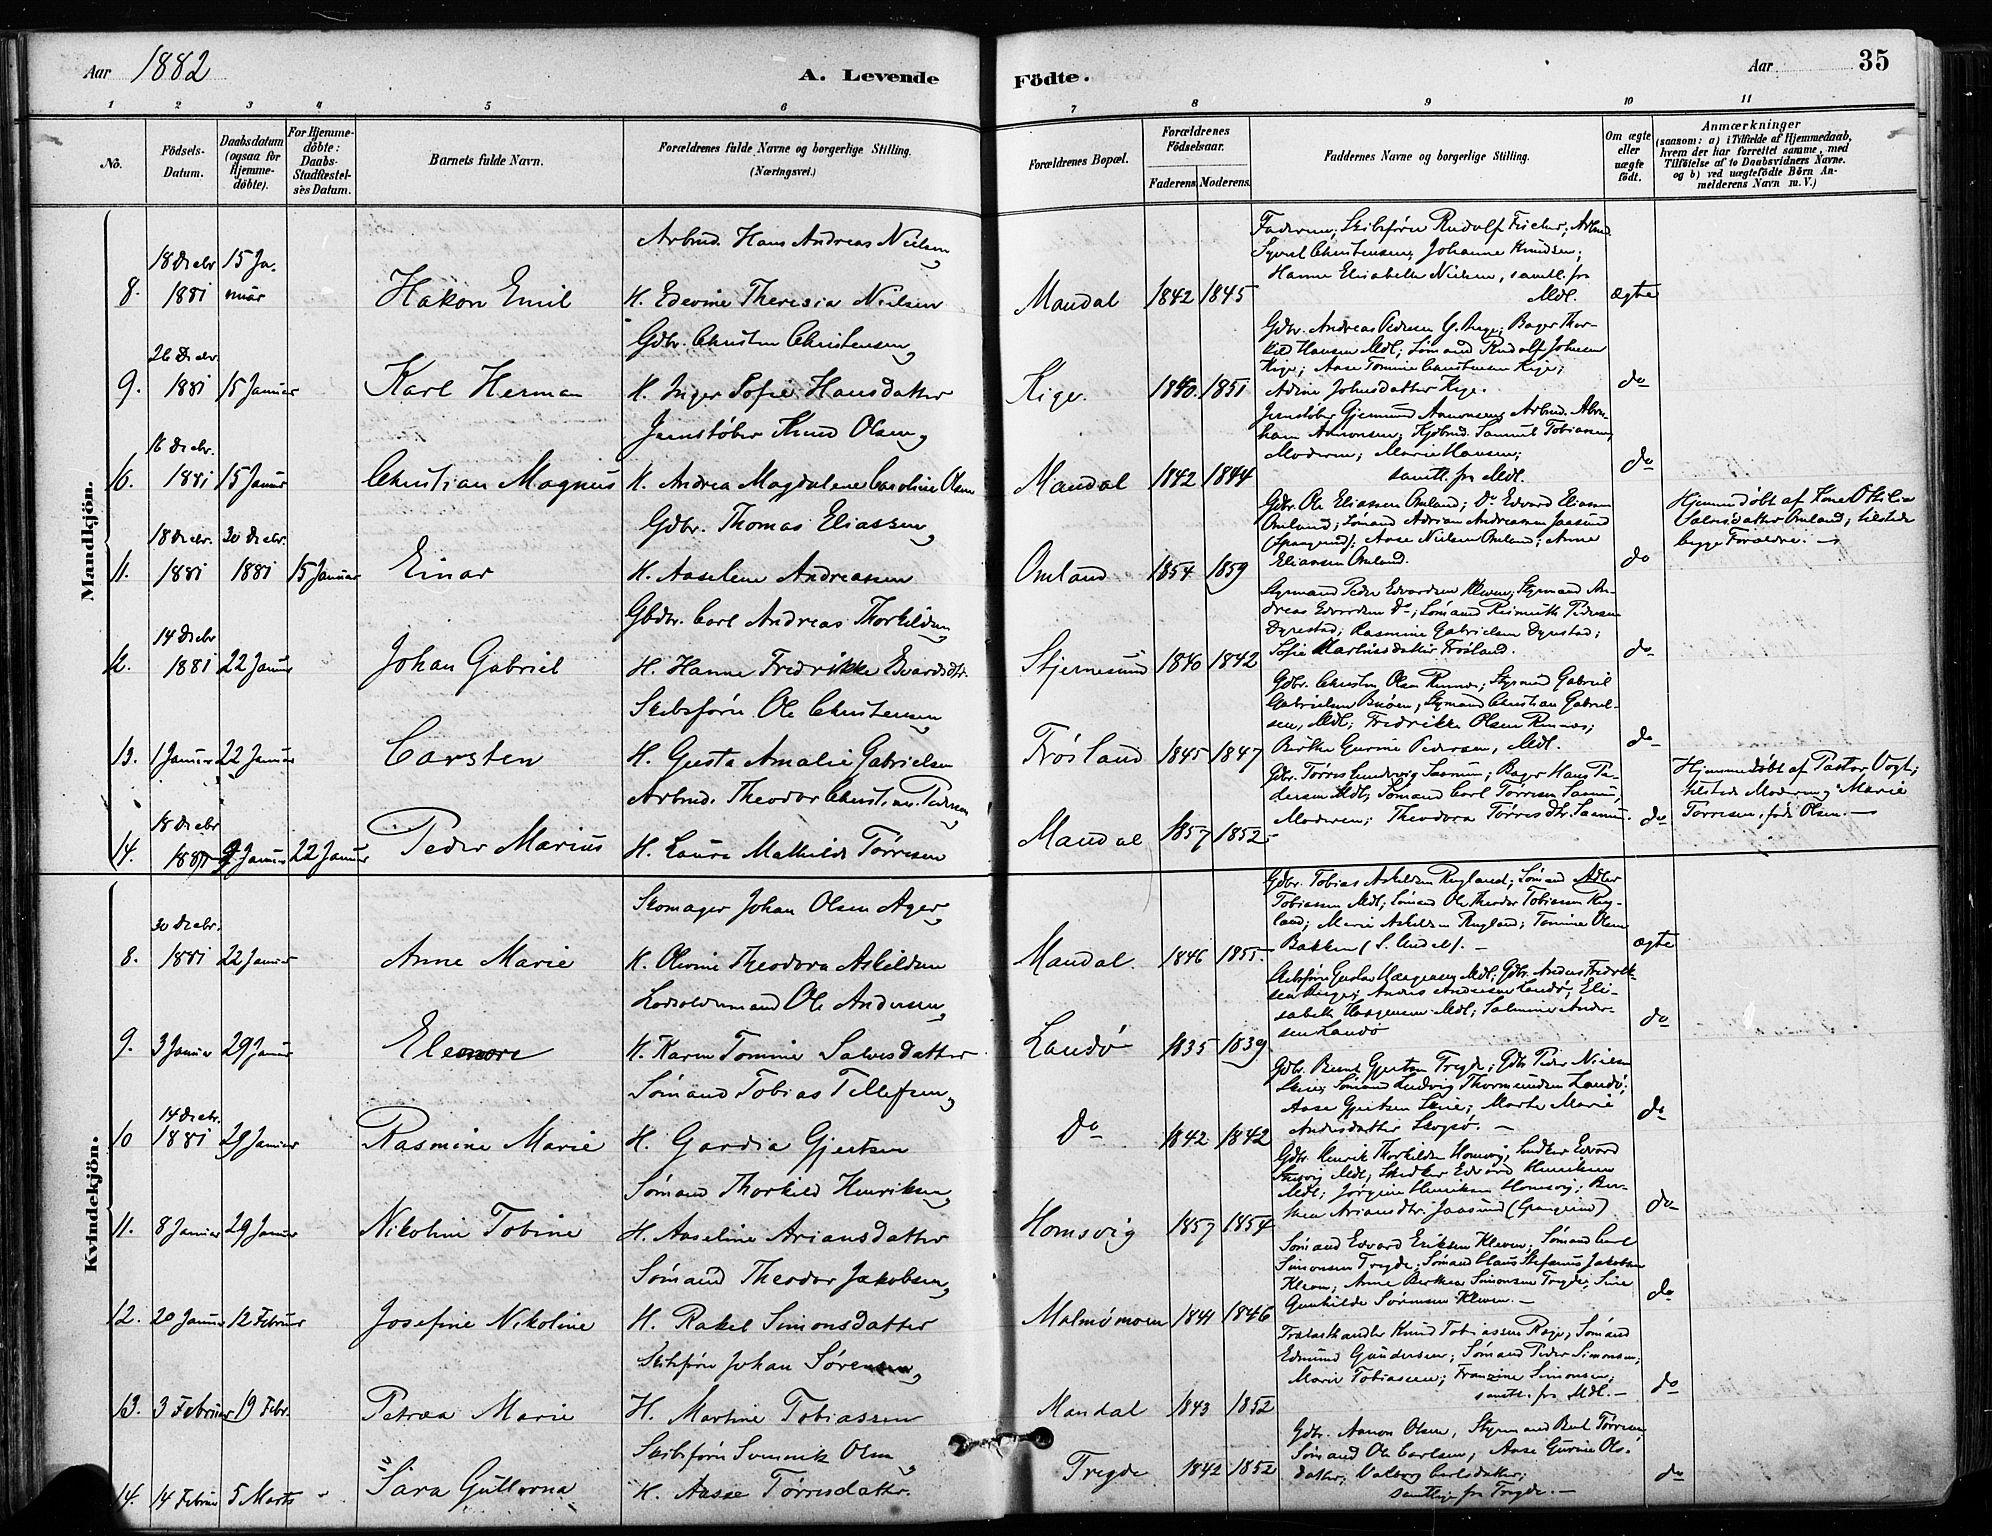 Aar 1882
A. Levende
Födte.
Aar
35
1 2 3 4 5 6 7 8 9 10 11
No.
Födsels-
Datum.
Daabsdatum
(ogsaa for
Hjemme-
døbte).
For Hjemme-
döbte:
Daabs-
Stadfæstel-
ses Datum.
Barnets fulde Navn.
Forældrenes fulde Navne og borgerlige Stilling.
(Næringsvei.)
Forældrenes Bopæl.
Forældrenes
Födselsaar.
Faderens. Moderens.
Faddernes Navne og borgerlige Stilling.
Om ægte
eller
uægte
födt.
Anmærkninger
(saasom: a) i Tilfælde af Hjemmedaab,
hvem der har forrettet samme, med
Tilföielse af to Daabsvidners Navne.
og b) ved uægtefödte Börn An-
melderens Navn m. V.)
Mandkjön.
Arbmd. Hans Andreas Nielsen
18 Decbr 15 Ja-
8. 1881 nuar Hakon Emil H. Edevine Theresia Nielsen Mandal 1842 1845 ægte
Faderen; Skibsfører Rudolf Fischer; Arbmd
Christensen; Johanne Knudsen;
Hanne Elisabeth Nielsen, samtl. fra
Mdl.
Gdbr. Christen Christensen
26 Decbr.
9. 1881 15 Januar Karl Herman H. Inger Sofie Hansdatter Kige. 1840. 1851 do
Gdbr. Andreas Pedersen Bager Thor-
kild Hansen Mdl; Sømand Rudolf Johnsen
Kige; Aase Tomine Christensen Kige;
Adine Johnsdatter Kige.
Jernstøber Knud Olsen
16 Decbr.
10. 1881 15 Januar Christian Magnus H. Andrea Magdalene Caroline Olsen Mandal 1842 1844 do
Jernstøber Gjermund Aanonsen; Arbmd. Abra-
ham Aanonsen; Samuel Tobiassen,
Moderen; Marie Hansen;
samtl. fra Mdl.
Gdbr. Thomas Eliassen
18 Decbr. 20 Decbr.
11. 1881 1881 15 Januar Einar H. Aaselene Andreassen Omland 1854 1859 do
Gdbr. Ole Eliassen Omland; Do Edvard Eliassen
Omland; Sømand Adrian Andreassen Jaasund
(Spangereid); Aase Nielsen Omland; Anne
Eliassen Omland.
Hjemmedøbt af Kone Othilie
Salvesdatter Omland; tilstede
begge Forældre. —
Gbdbr. Carl Andreas Thorkildsen
14 Decbr
12. 1881 22 Januar Johan Gabriel H. Hanne Fredrikke Evardsdtr. Stjernesund 1840 1842 do
Styrmand Peder Edvardsen Kleven; Styrmand An-
dreas Edvardsen Do; Sømand Pedersen
Dyrestad; Rasmine Gabrielsen Dyrestad;
Sofie Martinsdatter Frøsland.
Skibsfører Ole Christensen
13. 1 Januar 22 Januar Carsten H. Gusta Amalie Gabrielsen Frøsland 1845 1847 do
Gdbr. Christen Olsen Risnes; Styrmand Gabriel
Gabrielsen Styrmand Christian Gabriel-
sen, Mdl; Fredrikke Olsen Risnes;
Berthe Gurine Pedersen, Mdl.
Arbmd. Theodor Christian Pedersen
18 Decbr
14. 1881 Januar 22 Januar Peder Marius H. Laura Mathilde Tørresen Mandal 1857 1852 do
Gdbr. Tørres Bager Hans Pe-
dersen Mdl; Sømand Carl Tørresen
Moderen; Theodora Tørresdtr.
Hjemmedøbt af Pastor Vogt;
tilstede Moderen og Marie
Torresen, født Olsen. —
Kvindekjön.
Skomager Johan Olsen Ager
30 Decbr.
8. 1881 22 Januar Anne Marie H. Olevine Theodora Askildsen Mandal. 1846 1855 ægte
Gdbr. Tobias Askildsen Rugland; Sømand Adler
Tobiassen Mdl; Sømand Ole Theodor Tobiassen Rug-
land; Marie Askildsen Rugland; Tomine Olsen
Bakken (S. Undal). —
Lodsoldermand Ole Andersen
9. 3 Januar 29 Januar Eleonore H. Karen Tomine Salvesdatter Landø 1835 1839 do
Skibsfører Gustav Mdl; Gdbr. Anders Fredrik-
sen Anders Andersen Landø; Eli-
sabeth Mdl; Salmine Ander-
sen Landø
Sømand Tobias Tellefsen
14 Decbr.
10 1881 29 Januar Rasmine Marie H. Gardia Gjertsen Do 1842 1842 do
Gdbr. Bernt Gjertsen Tregde; Gdbr Peder Nielsen
Sømand Ludvig Thormundsen Landø;
Aase Gjertsen Marte Marie
Andersdatter Skogsø. —
Sømand Thorkild Henriksen
11. 8 Januar 29 Januar Nikoline Tobine H. Aaseline Ariansdatter Homsvig 1857 1854 do
Gdbr Henrik Thorkildsen Homsvig; Edvard
Mdl; Edvard Henriksen
Mdl; Jørgine Henriksen Homsvig; Ber-
thea Ariansdtr. Jaasund (Spangereid)
Sømand Theodor Jakobsen
12. 20 Januar 12 Februar Josefine Nikoline H. Rakel Simonsdatter Malmømoen 1844 1846 do
Sømand Edvard Eriksen Kleven; Sømand Carl
Simonsen Tregde; Sømand Claus Stefanus Jakobsen
Kleven; Anne Berthea Simonsen Tregde;
Gunhilde Sørensen Kleven. —
Skibsfører Johan Sørensen
13. 3 Februar 19 Febr. Petræa Marie H. Martine Tobiassen Mandal 1843 1852 do
Trælasthandler Knud Tobiassen Sømand
Edmund Gundersen; Sømand Peder Simonsen;
Marie Tobiassen; Franzine Simonsen;
samtl. fra Mdl. —
Skibsfører Olsen
14. 14 Februar 5 Marts Sara Gullorna H. Aasse Tørresdatter. Tregde 1842 1852 do
Gdbr. Aanon Olsen, Styrmand Berl Tørresen,
Sømand Ole Carlsen, Aase Gurine Ols-
datter; Valborg Carlsdatter;
samtlige fra Tregde. —